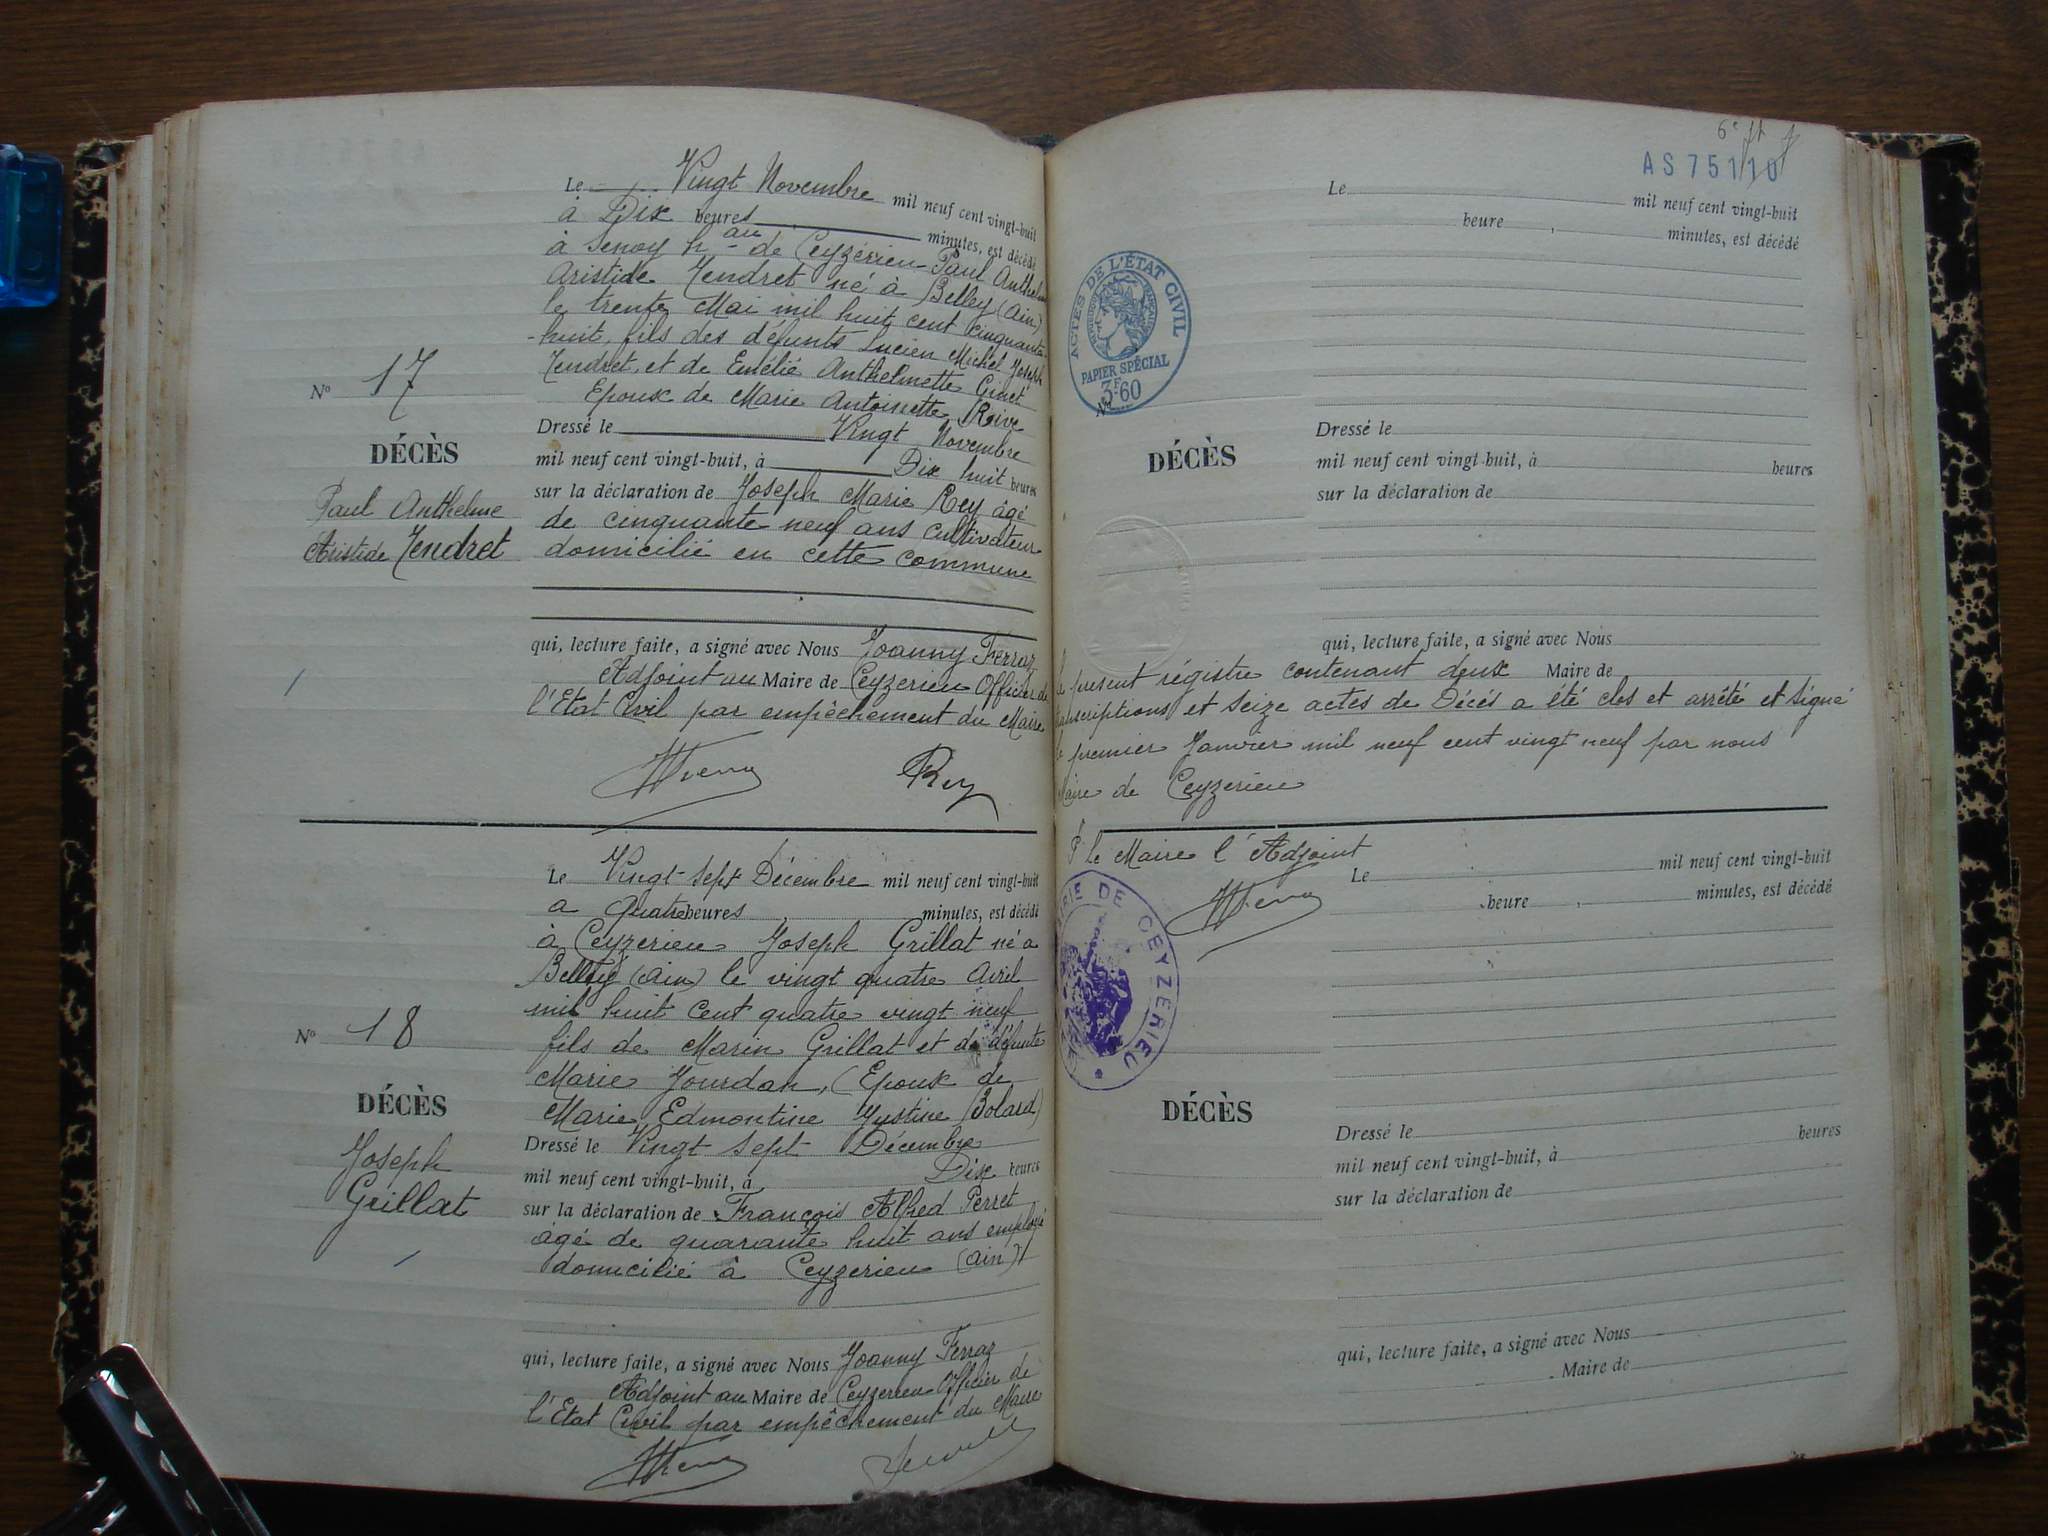 Le Vingt Novembre mil neuf cent vingt-huit
à Dix heures minutes, est décédé
à Senoy hau de Ceyzérieu Paul Anthelme
Aristide Tendret né à Belley (Ain)
le trente Mai mil huit cent cinquante-
-huit, fils des défunts Lucien Michel Joseph
Tendret, et de Emélie Anthelmette Ginet
Epoux de Marie Antoinette Rive
Nº 17
DÉCÈS
Paul Anthelme
Aristide Tendret
Dressé le Vingt Novembre
mil neuf cent vingt-huit, à Dix huit heures
sur la déclaration de Joseph Marie Rey âgé
de cinquante neuf ans cultivateur
domicilié en cette commune
qui, lecture faite, a signé avec Nous Joanny Ferraz
Adjoint au Maire de Ceyzerieu Officier de
l'Etat Civil par empêchement du Maire
Rey
Le Vingt-sept Décembre mil neuf cent vingt-huit
a quatre heures minutes, est décédé
à Ceyzerieu Joseph Grillat né a
Belley (Ain) le vingt quatre Avril
mil huit cent quatre vingt neuf
fils de Marin Grillat et de défunte
Marie Jourdan, (Epoux de
Marie Edmontine Justine Bolard)
Nº 18
DÉCÈS
Joseph
Grillat
Dressé le Vingt sept Décembre
mil neuf cent vingt-huit, à Dix heures
sur la déclaration de François Alfred Perret
âgé de quarante huit ans employé
domicilié à Ceyzerieu (Ain)
qui, lecture faite, a signé avec Nous Joanny Ferraz
Adjoint au Maire de Ceyzerieu Officier de
l'Etat Civil par empêchement du Maire
AS 75110
Le mil neuf cent vingt-huit
heure minutes, est décédé
ACTES DE L'ÉTAT CIVIL
PAPIER SPÉCIAL
3F.60
Nº
DÉCÈS
Dressé le
mil neuf cent vingt-huit, à heures
sur la déclaration de
qui, lecture faite, a signé avec Nous
Maire de
présent régistre contenant deux
transcriptions et seize actes de Décés a été clos et arrêté et signé
le premier Janvier mil neuf cent vingt neuf par nous
Maire de Ceyzerieu
P le Maire l'Adjoint
MAIRIE DE CEYZÉRIEU
Le mil neuf cent vingt-huit
heure minutes, est décédé
DÉCÈS
Dressé le
mil neuf cent vingt-huit, à heures
sur la déclaration de
qui, lecture faite, a signé avec Nous
Maire de